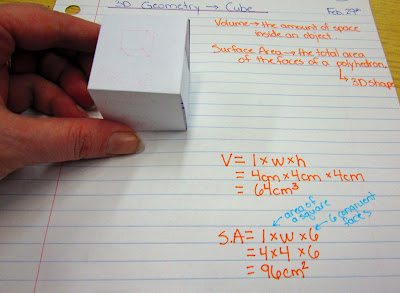 3D Geometry → Cube
Feb. 29th
Volume → the amount of space
inside an object.
Surface Area → the total area
of the faces of a polyhedron.
↳ 3D shape
V = l × w × h
= 4cm × 4cm × 4cm
= 64cm³
area of
a square
6 congruent
faces
S.A = l × w × 6
= 4 × 4 × 6
= 96cm²